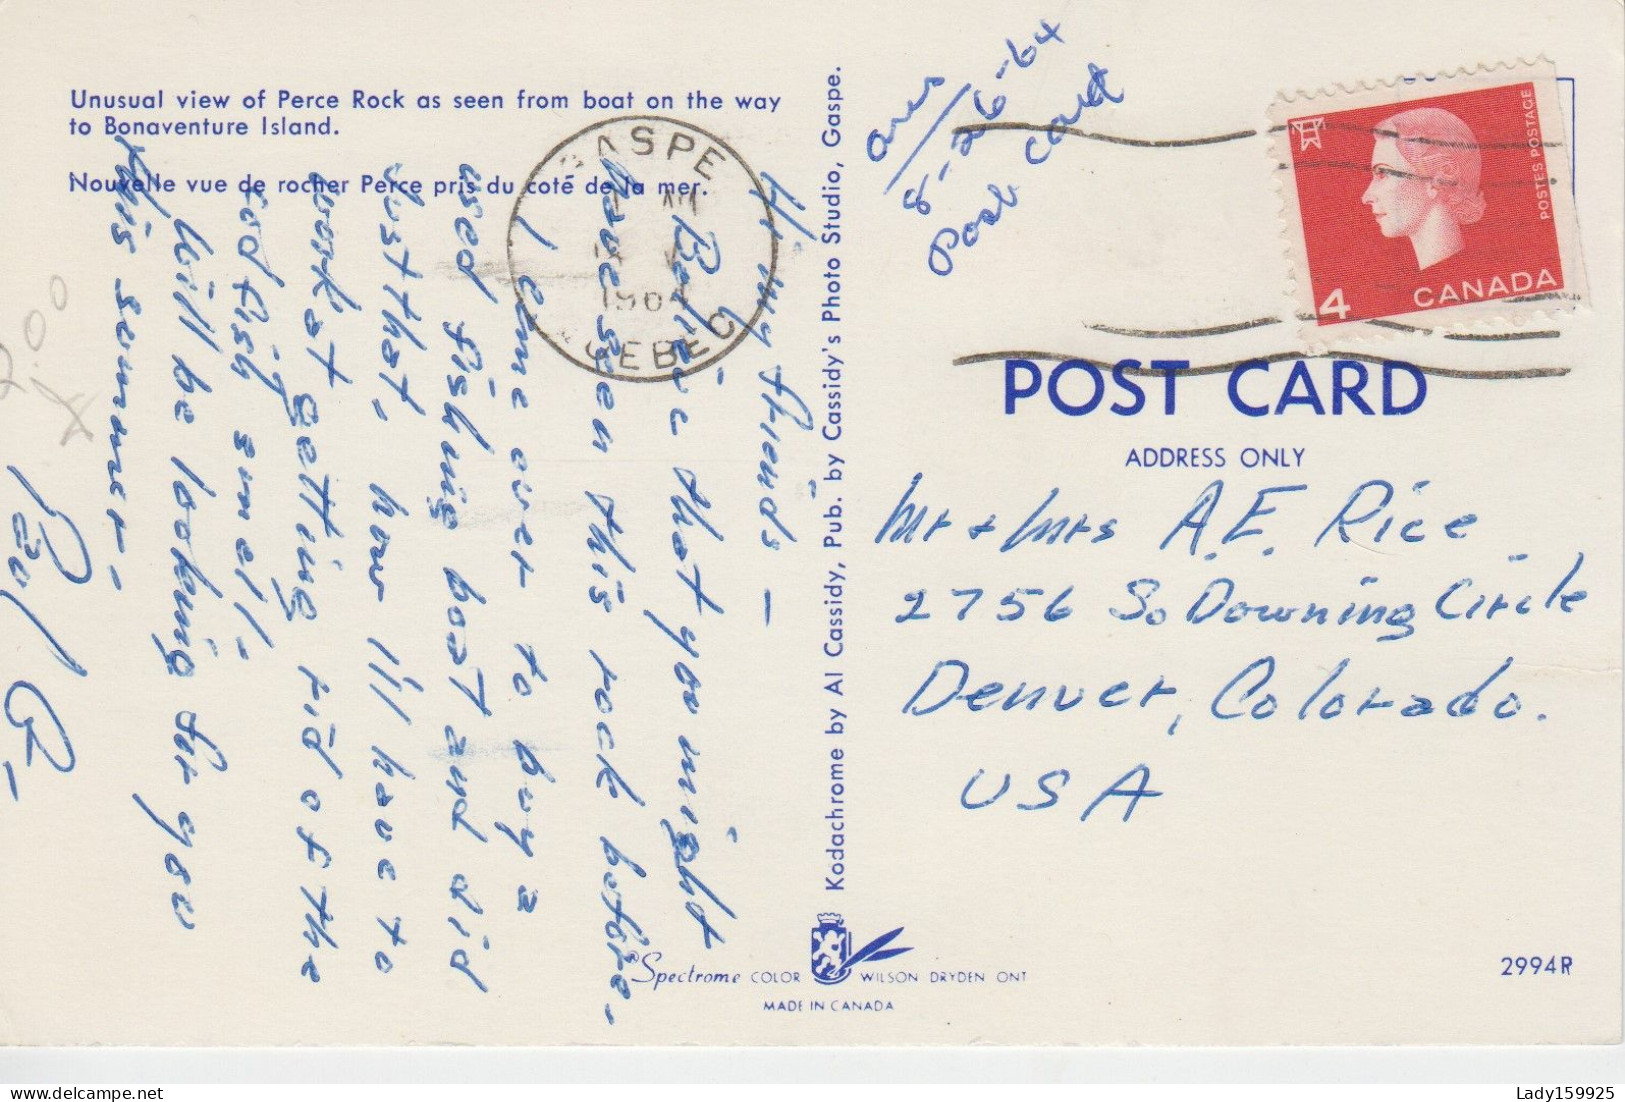 Unusual view of Perce Rock as seen from boat on the way
to Bonaventure Island.
Nouvelle vue de rocher Perce pris du coté de la mer.
Hi my friends -
Believe that you might
have seen this rock before -
I came over to buy a
used fishing boat and did
just that. how I'll have to
work at getting rid of the
cod fish smell.
Will be looking for you
this summer.
GASPE
AM
1964
QUEBEC
Kodachrome by Al Cassidy, Pub. by Cassidy's Photo Studio, Gaspe.
ans
8-26-64
Post card
POSTES POSTAGE
4 CANADA
POST CARD
ADDRESS ONLY
Mr + Mrs A.E. Rice
2756 So Downing Circle
Denver, Colorado.
USA
Spectrome COLOR WILSON DRYDEN ONT
MADE IN CANADA
2994R
2.00
Lady159925